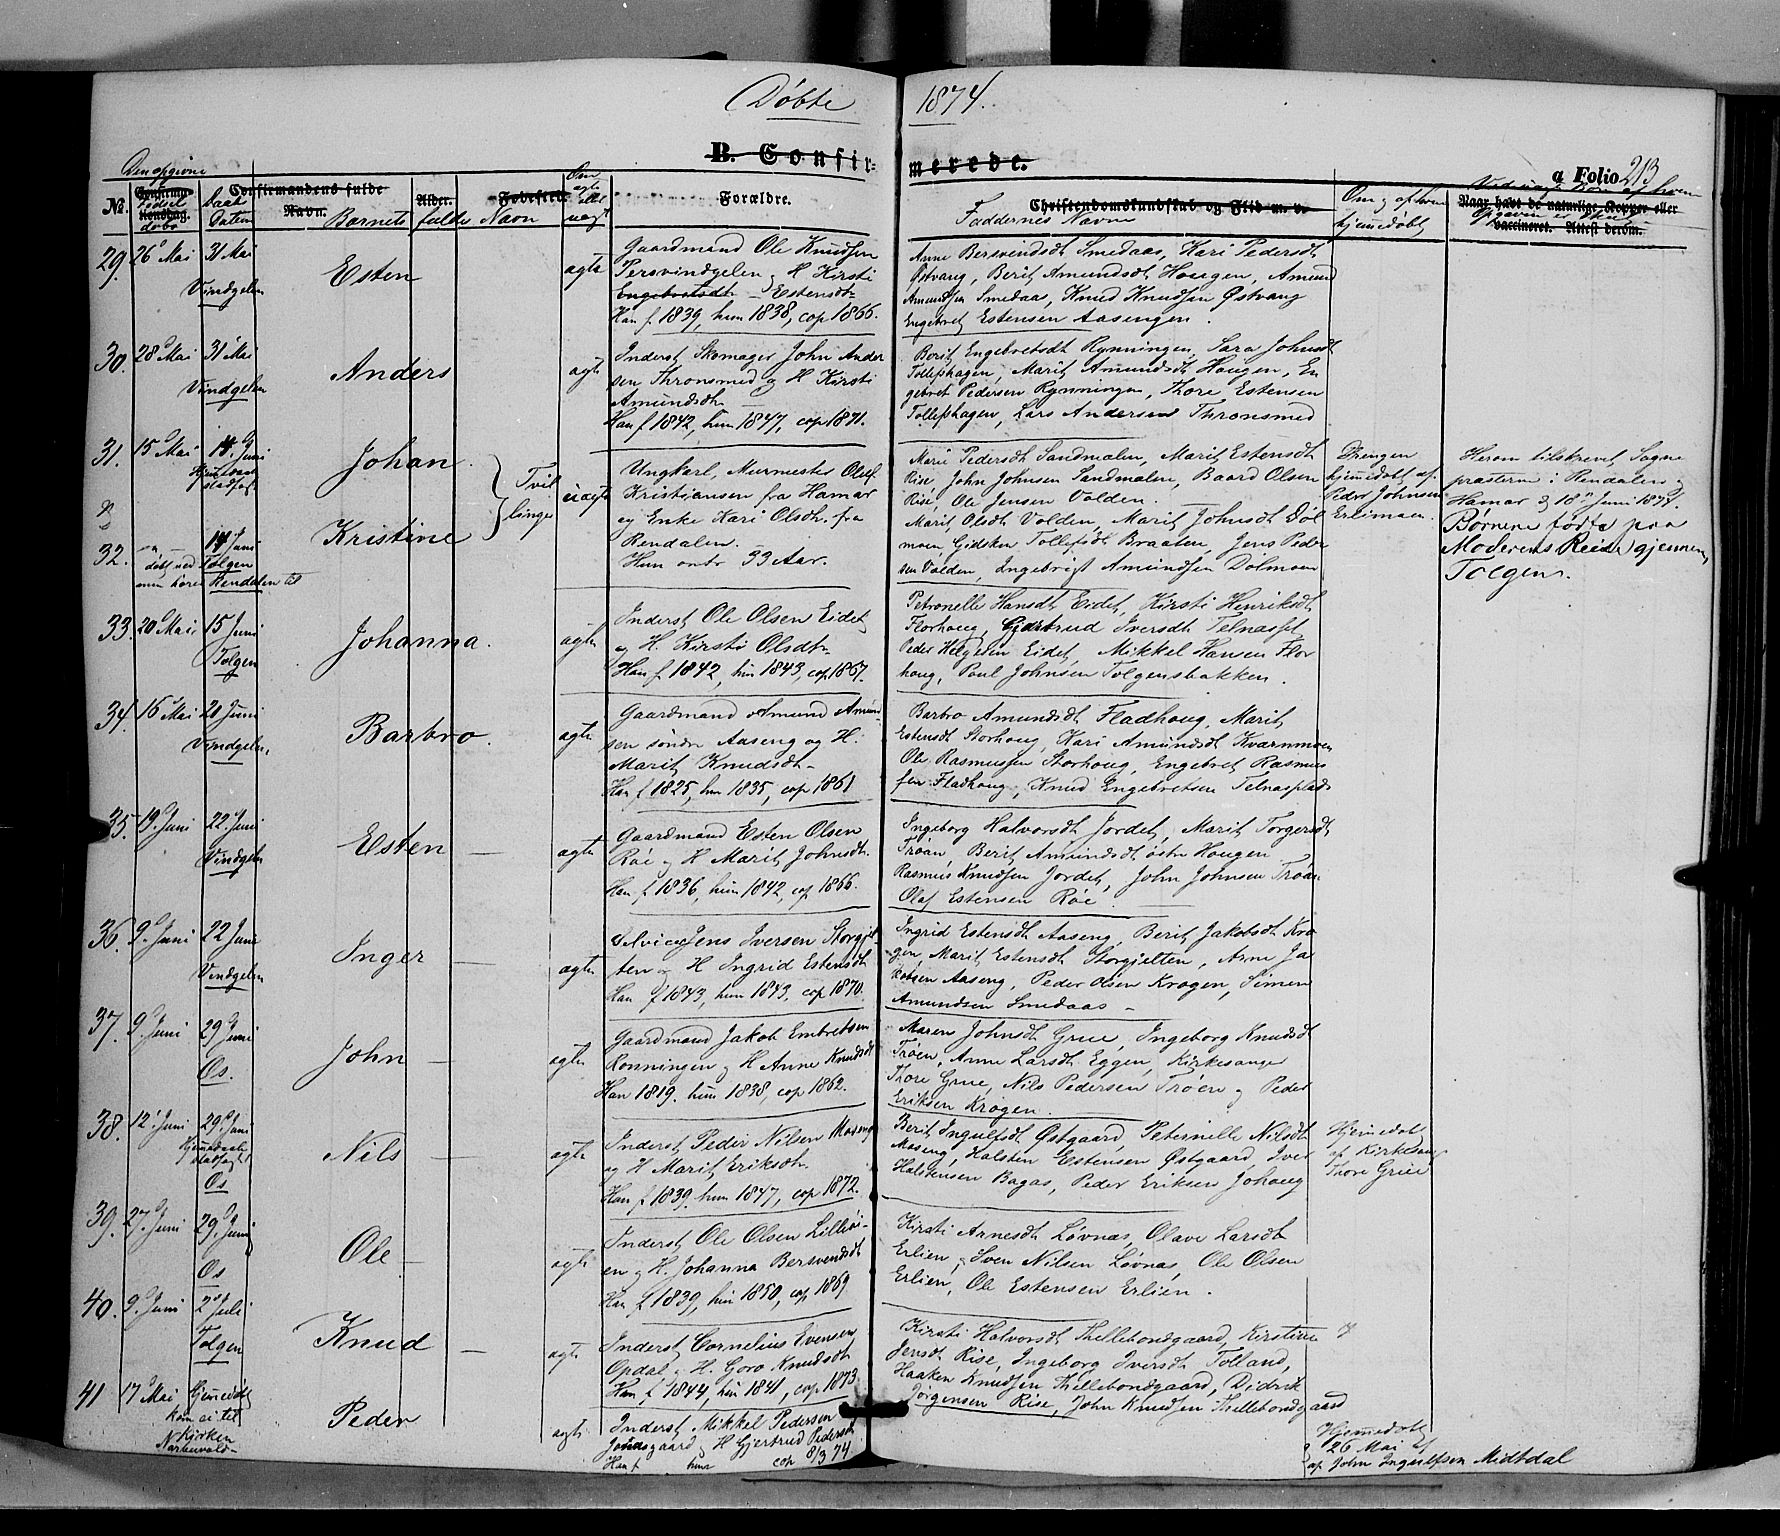 Döbte 1874.
B. Confirmerede.
a Folio 213
Den opgivne
No.
Confirmationsdag.
Födsel
Daab
Daten
Confirmandens fulde Navn.
Barnets fulde Navn
Alder.
Fødested
Om ægte eller uægt
Forældre.
Christendomskundskab og Flid m. v.
Faddernes Navne
Om og af hvem hjemmedöbt
Naar havt de naturlige Kopper eller vaccineret. Attest derom.
29. 26 Mai 31 Mai Vindgelen
Esten
ægte
Gaardmand Ole Knudsen
Persvindgelen og H. Kirsti
Engebretsdtr – Estensdtr
Han f. 1839, hun 1838, cop 1866.
Anne Bersvendsdt Smedaas, Kari Pedersdt
Østvang, Berit Amundsdt Hougen, Amund
Amundsen Smedaas, Knud Knudsen Østvang
Engebret Estensen Aasengen.
30. 28 Mai 31 Mai Vindgelen
Anders
ægte
Inderst Skomager John Ander
sen Thronsmed og H. Kirsti
Amundsdtr
Han f. 1842, hun 1847, cop 1871.
Berit Engebretsdt Rynningen, Sara Johnsdt
Tollefshagen, Marit Amundsdt Hougen, En
gebret Pedersen Rynningen, Thore Estensen
Tollefshagen, Lars Andersen Thronsmed
31. 15 Mai 14. Juni
Johan.
Tvillinger
uægte
Ungkarl, Murmester Oluf
Kristiansen fra Hamar
og Enke Kari Olsdtr. fra
Rendalen.
Hun omtr 33 Aar.
Marie Pedersdt Sandmalen, Marit Estensdt
Rise, John Johnsen Sandmalen, Baard Olsen
Rise, Ole Jensen Volden.
Drengen
hjemmedöbt af
Peder Johnsen
Erlimoen.
Herom tilskrevet Sogne
præsterne i Rendalen og
Hamar d. 18de Juni 1874.
Børnene fødte paa
Moderens Reise gjennem
Tolgen.
& 32. 14 Juni Tolgen
döbt ved
Rendalen til
Kristine
Marit Olsdt Volden, Marit Johnsdt Döl
moen Gidsken Tollefsdt Braaten, Jens Peder
sen Volden, Ingebrigt Amundsen Dölmoen
33. 20 Mai 15 Juni Tolgen
Johanna.
ægte
Inderst Ole Olsen Eidet
og H. Kirsti Olsdtr
Han f. 1842, hun 1843, cop 1867.
Petronelle Hansdt Eidet, Kirsti Henriksdt
Florhoug, Gjertrud Iversdt Telnasset,
Peder Helgesen Eidet, Mikkel Hansen Flor
houg, Poul Johnsen Tolgensbakken.
34. 16 Mai 20 Juni Vindgelen.
Barbro.
ægte
Gaardmand Amund Amund
sen söndre Aaseng og H.
Marit Knudsdtr
Han f 1825, hun 1835, cop 1861
Barbro Amundsdt Fladhoug, Marit
Estensdt Storhoug, Kari Amundsdt Kværnmoen
Ole Rasmussen Storhoug, Engebret Rasmus
sen Fladhoug, Knud Engebretsen Telnasplads
35. 19. Juni 22. Juni Vindgelen
Esten –
ægte
Gaardmand Esten Olsen
Röe og H. Marit Johnsdt.
Han f 1836, hun 1842, cop 1866.
Ingeborg Halvorsdt Jordet, Marit Torgersdt
Tröan, Berit Amundsdt östre Hougen
Rasmus Knudsen Jordet, John Johnsen Tröan
Olaf Estensen Röe.
36. 9. Juni 22 Juni Vindgelen
Inger –
ægte
Jens Iversen Storgjel
ten og H Ingrid Estensdt
Han f 1843, hun 1843, cop 1870.
Ingrid Estensdt Aaseng, Berit Jakobsdt Kro
gen, Marit Estensdt Storgjelten, Arne Ja
kobsen Aaseng, Peder Olsen Krogen, Simen
Amundsen Smedaas –
37. 9. Juni 29 Juni Os.
John –
ægte
Gaardmand Jakob Embretsen
Ronningen og H Anne Knudsdt
Han 1819. hun 1838, cop 1862.
Maren Johnsdt Grue, Ingeborg Knudsdt
Tröen, Anne Larsdt Eggen, Kirkesanger
Thore Grue, Nils Pedersen Tröen og Peder
Eriksen Krogen.
38. 12. Juni 29. Juni Hjemmedaab stadfæst. Os
Nils –
ægte
Inderst Peder Nilsen Moseng
og H Marit Eriksdtr.
Han f 1839. hun 1847, cop 1872.
Berit Ingulfsdt Østgaard, Peternille Nilsdt
Moseng, Halsten Estensen Østgaard, Iver
Halstensen Bagas, Peder Eriksen Johoug
Hjemmedöbt
af Kirkesang.
Thore Grue
39. 27. Juni 29. Juni Os
Ole –
ægte
Inderst Ole Olsen Lilleöi-
en og H. Johanna Bersvendsdt
Han f 1839, hun 1850, cop 1869
Kirsti Arnesdt Lövnas, Olave Larsdt
Erlien, Sven Nilsen Lövnas, Ole Olsen
Erlien, Ole Estensen Erlien.
40. 9. Juni 2 Juli Tolgen
Knud –
ægte
Inderst Cornelius Evensen
Opdal og H. Goro Knudsdt
Han f. 1844, hun 1841, cop 1873
Kirsti Halvorsdt Thellebondgaard, Kirstine
Jensdt Rise, Ingeborg Iversdt Tolland,
Haaken Knudsen Thellebondgaard, Didrik
Jörgensen Rise, John Knudsen Thellebondgaard
41 17 Mai Hjemmedöbt
kom ei til
Kirken
Peder
ægte
Inderst Mikkel Pedersen
og H Gjertrud Pedersdt
Han f hun cop 8/3 74.
Hjemmedöbt
26 Mai
af John Ingulfsen Midtdal